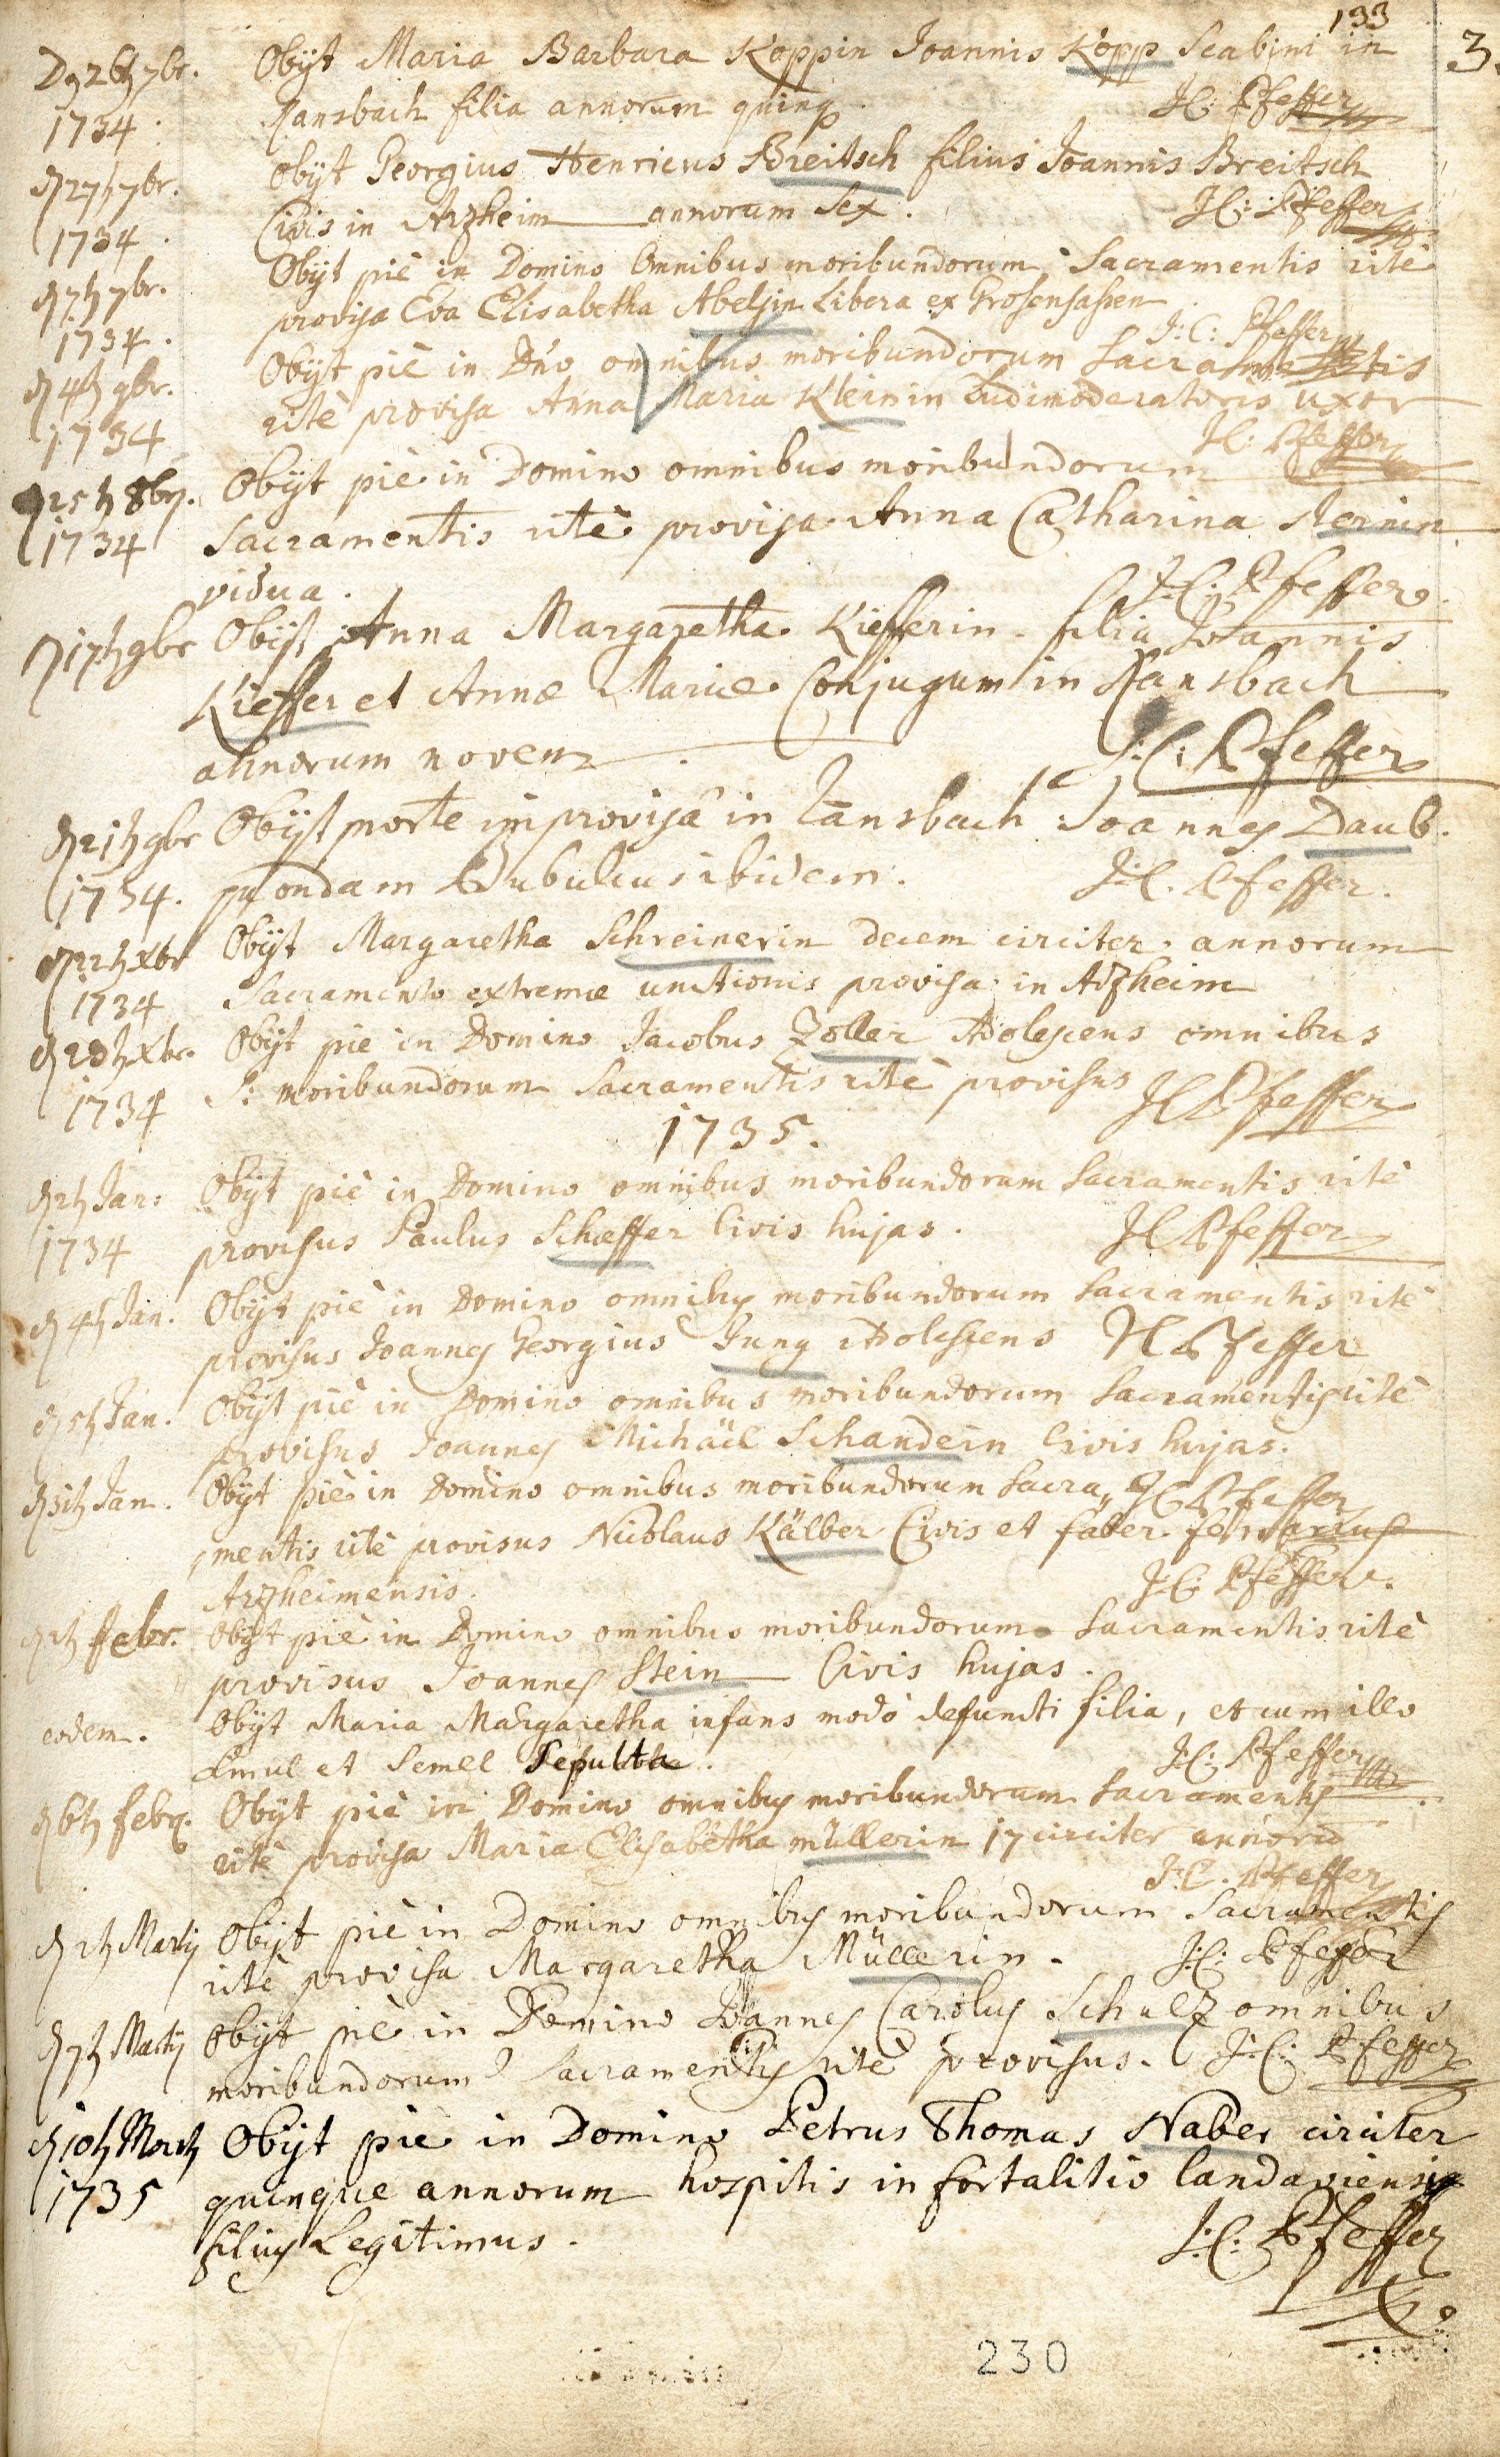 133
3.
D 26 th 7br. Obijt Maria Barbara Koppin Joannis Kopp Scabini in
1734. Ransbach filia annorum quinq. J:C: Pfeffer
d 27 th 7br. Obijt Georgius Henricus Breitsch filius Joannis Breitsch
1734. Civis in Arzheim annorum Sex. J:C: Pfeffer
d 7 th 7br. Obijt piè in Domino Omnibus moribundorum Sacramentis ritè
1734. provisa Eva Elisabetha Abelsin Libera ex
J:C: Pfeffer
d 4 th 9br. Obijt piè in Dno omnibus moribundorum Sacramentis
1734 ritè provisa Anna Maria Kleinin Ludimoderatoris uxor
J:C: Pfeffer
d 25 th 8br. Obijt piè in Domino omnibus moribundorum
1734 Sacramentis ritè provisa Anna Catharina
vidua. J:C: Pfeffer.
d 17 th 9br Obijt Anna Margaretha Kiefferin filia Joannis
Kieffer et Annæ Mariæ Conjugum in Ransbach
annorum novem. J:C: Pfeffer
d 21 th 9br Obijt morte improvisâ in Ransbach Joannes Daub.
1734. quondam Bubulcus ibidem. J:C. Pfeffer.
d 22 th Xbr Obijt Margaretha Schreinerin decem circiter annorum
1734 Sacramento extremæ unctionis provisa in Arzheim
d 28 th Xbr. Obijt piè in Domino Jacobus Zoller Adolescens omnibus
1734 S: moribundorum Sacramentis ritè provisus JC Pfeffer
1735.
d 2 th Jan: Obijt piè in Domino omnibus moribundorum Sacramentis ritè
1734 provisus Paulus Schæffer Civis hujas. JC Pfeffer
d 4 th Jan. Obijt piè in Domino omnibus moribundorum Sacramentis ritè
provisus Joannes Georgius Jung Adolescens JC Pfeffer
d 5 th Jan. Obijt piè in Domino omnibus moribundorum Sacramentis ritè
provisus Joannes Michäel Schandein Civis hujas.
d 31 th Jan. Obijt piè in Domino omnibus moribundorum Sacra„ JC Pfeffer
mentis ritè provisus Nicolaus Kälber Civis et faber ferrarius
Arzheimensis. J:C: Pfeffer.
d 2 th febr. Obijt piè in Domino omnibus moribundorum Sacramentis ritè
provisus Joannes Stein Civis hujas.
eodem. Obijt Maria Margaretha infans modò defuncti filia, et cum illo
simul et Semel Sepulta. J:C: Pfeffer
d 6 th febr. Obijt piè in Domino omnibus moribundorum Sacramentis
ritè provisa Maria Elisabetha müllerin 17 circiter annorum
J:C. Pfeffer
d 2 th Martij Obijt piè in Domino omnibus moribundorum Sacramentis
ritè provisa Margaretha Müllerin. J:C: Pfeffer
d 7 th Martij Obijt piè in Domino Joannes Carolus Schulz omnibus
moribundorum Sacramentis ritè provisus. J:C: Pfeffer
d 10 th Martij Obijt piè in Domino Petrus Thomas Naber circiter
1735 quinque annorum hospitis in fortalitio landaviensis
filius Legitimus. J:C: Pfeffer
230